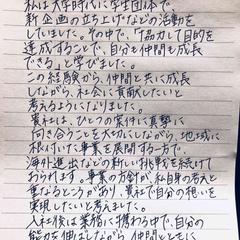 私は大学時代に学生団体で、
新企画の立ち上げなどの活動を
していました。その中で、「協力して目的を
達成することで、自分も仲間も成長
できる」と学びました。
この経験から、仲間と共に成長
しながら、社会に貢献したいと
考えるようになりました。
貴社は、ひとつの案件に真摯に
向き合うことを大切にしながら、地域に
根付いて事業を展開する一方で、
海外進出などの新しい挑戦を続けて
おられます。事業の方針が、私自身の考えと
重なるところがあり、貴社で自分の想いを
実現したいと考えました。
入社後は業務に携わる中で、自分の
能力を伸ばしながら、仲間とともに